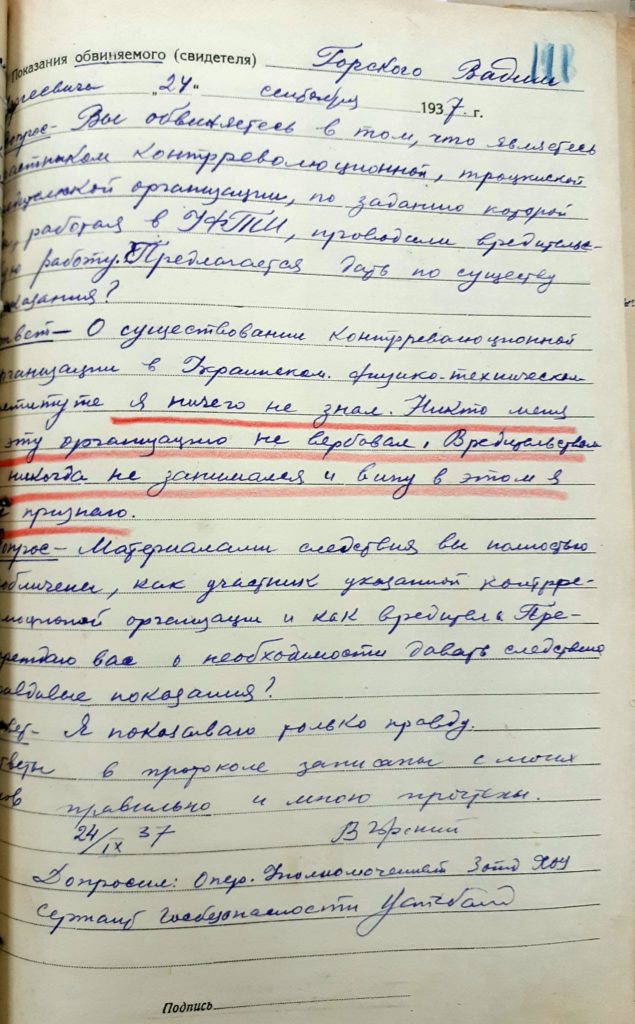 118
Показания обвиняемого (свидетеля) Горского Вадим
ргеевича „24“ сентября 1937 г.
опрос- Вы обвиняетесь в том, что являетесь
астником контрреволюционной, троцкистской
организации, по заданию которой
работая в УФТИ, проводили вредительс-
ую работу. Предлагается дать по существу
казания?
твет- О существовании контрреволюционной
рганизации в Украинском. физико-техническом
ституте я ничего не знал. Никто меня
эту организацию не вербовал, Вредительством
никогда не занимался и вину в этом я
е признаю.
опрос- Материалами следствия вы полностью
обличены, как участник указанной контрре-
люционной организации и как вредитель Пре-
преждаю вас о необходимости давать следствию
равдивые показания?
вет- Я показываю только правду.
тветы в протоколе записаны с моих
ов правильно и мною прочтены.
24/IX 37 В Горский
Допросил: Опер. Уполномоченный 3 отд ХОУ
Сержант Госбезопасности
Подпись